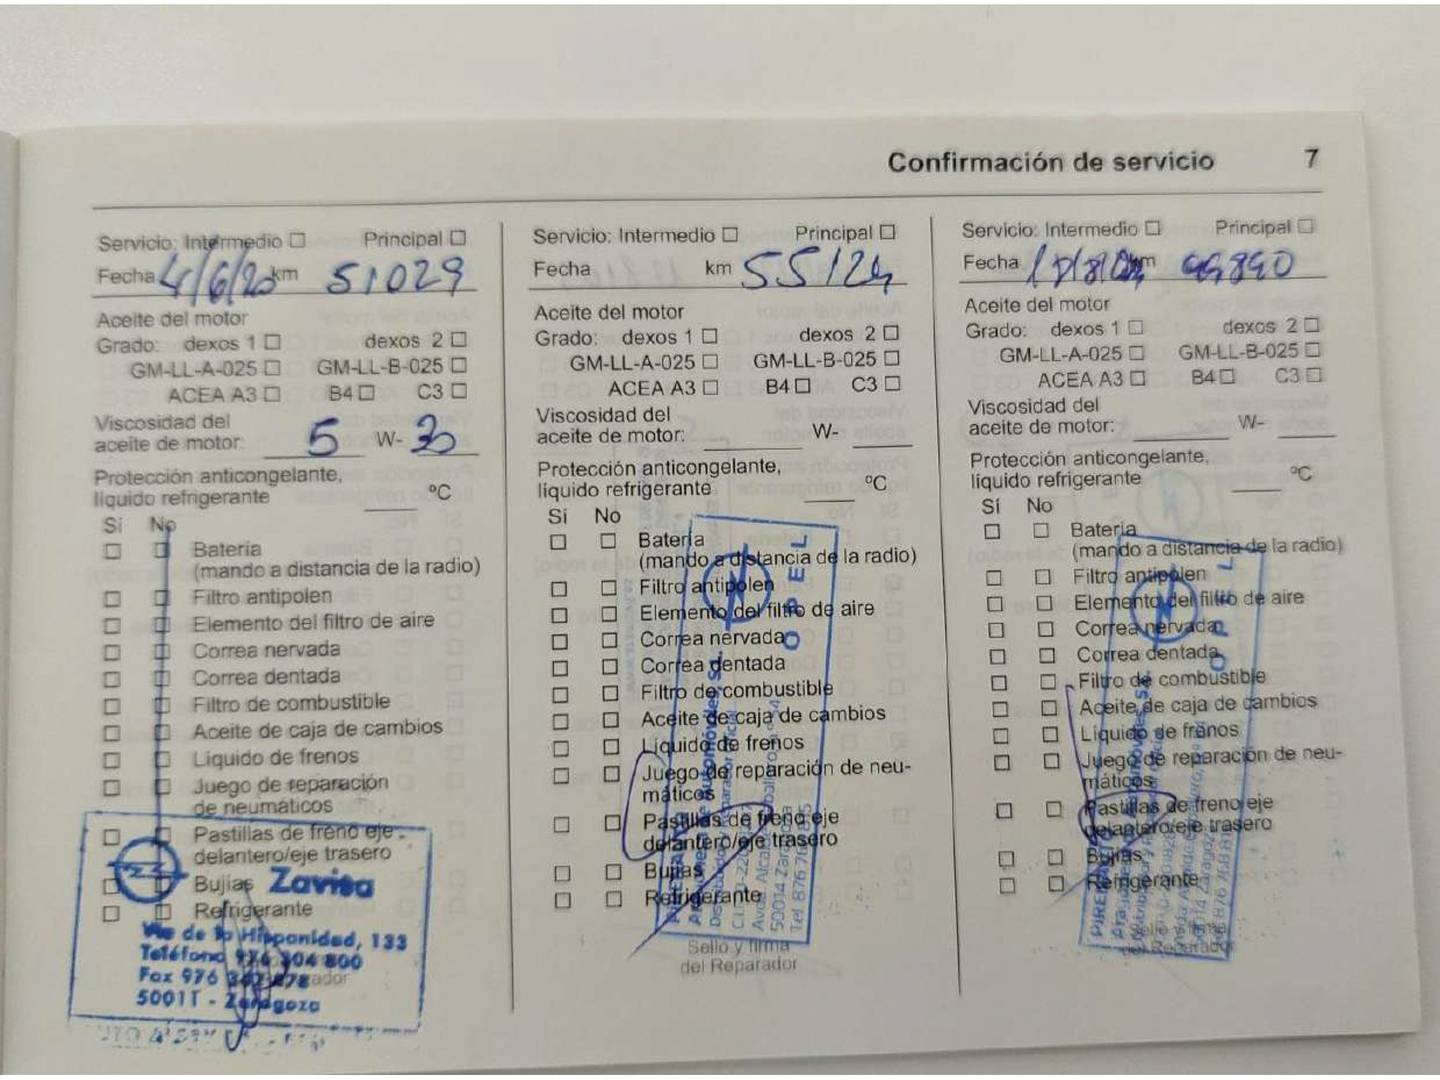 Confirmación de servicio 7
Servicio: Intermedio ☐ Principal ☐
Fecha 4/6/20 km 51029
Aceite del motor
Grado: dexos 1 ☐ dexos 2 ☐
GM-LL-A-025 ☐ GM-LL-B-025 ☐
ACEA A3 ☐ B4 ☐ C3 ☐
Viscosidad del
aceite de motor: 5 W- 30
Protección anticongelante,
líquido refrigerante ºC
Sí No
☐ ☐ Batería
(mando a distancia de la radio)
☐ ☐ Filtro antipolen
☐ ☐ Elemento del filtro de aire
☐ ☐ Correa nervada
☐ ☐ Correa dentada
☐ ☐ Filtro de combustible
☐ ☐ Aceite de caja de cambios
☐ ☐ Líquido de frenos
☐ ☐ Juego de reparación
de neumáticos
☐ ☐ Pastillas de freno eje
delantero/eje trasero
☐ ☐ Bujías
☐ ☐ Refrigerante
Zavisa
Vía de la Hispanidad, 133
Teléfono 976 304 800
Fax 976
- Zaragoza
Servicio: Intermedio ☐ Principal ☐
Fecha km 55124
Aceite del motor
Grado: dexos 1 ☐ dexos 2 ☐
GM-LL-A-025 ☐ GM-LL-B-025 ☐
ACEA A3 ☐ B4 ☐ C3 ☐
Viscosidad del
aceite de motor: W-
Protección anticongelante,
líquido refrigerante ºC
Sí No
☐ ☐ Batería
(mando a distancia de la radio)
☐ ☐ Filtro antipolen
☐ ☐ Elemento del filtro de aire
☐ ☐ Correa nervada
☐ ☐ Correa dentada
☐ ☐ Filtro de combustible
☐ ☐ Aceite de caja de cambios
☐ ☐ Líquido de frenos
☐ ☐ Juego de reparación de neu-
máticos
☐ ☐ Pastillas de freno eje
delantero/eje trasero
☐ ☐ Bujías
☐ ☐ Refrigerante
OPEL
Automóviles, S.L.
50014 Zaragoza
Sello y firma
del Reparador
Servicio: Intermedio ☐ Principal ☐
Fecha km 99890
Aceite del motor
Grado: dexos 1 ☐ dexos 2 ☐
GM-LL-A-025 ☐ GM-LL-B-025 ☐
ACEA A3 ☐ B4 ☐ C3 ☐
Viscosidad del
aceite de motor: W-
Protección anticongelante,
líquido refrigerante ºC
Sí No
☐ ☐ Batería
(mando a distancia de la radio)
☐ ☐ Filtro antipolen
☐ ☐ Elemento del filtro de aire
☐ ☐ Correa nervada
☐ ☐ Correa dentada
☐ ☐ Filtro de combustible
☐ ☐ Aceite de caja de cambios
☐ ☐ Líquido de frenos
☐ ☐ Juego de reparación de neu-
máticos
☐ ☐ Pastillas de freno eje
delantero/eje trasero
☐ ☐ Bujías
☐ ☐ Refrigerante
OPEL
Sello y firma
del Reparador